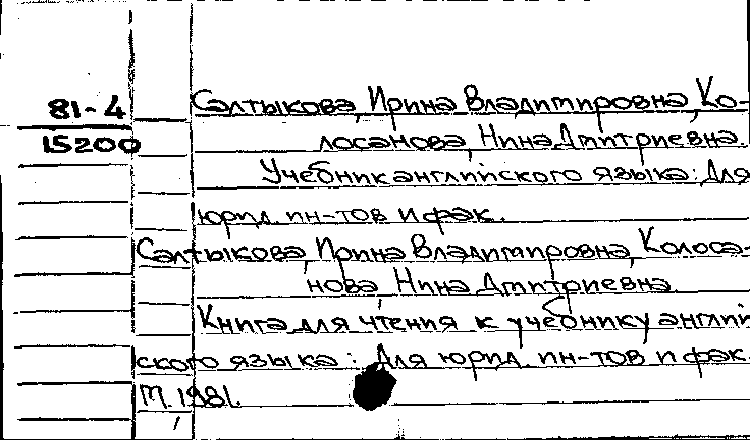 81-4
15200
Салтыкова, Ирина Владимировна, Ко-
лосанова, Нина Дмитриевна.
Учебник английского языка: Для
юрид. ин-тов и фак.
Салтыкова, Ирина Владимировна, Колоса-
нова, Нина Дмитриевна.
Книга для чтения к учебнику англий
ского языка: Для юрид. ин-тов и фак.
М. 1981.